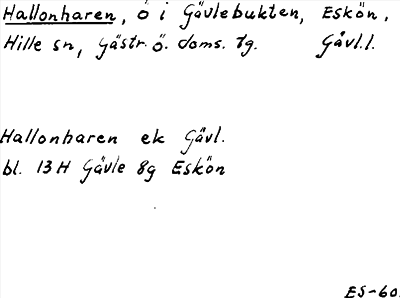 Hallonharen, ö i Gävlebukten, Eskön,
Hille sn, Gästr. ö. doms. tg. Gävl.l.
Hallonharen ek Gävl.
bl. 13 H Gävle 8g Eskön
ES-60